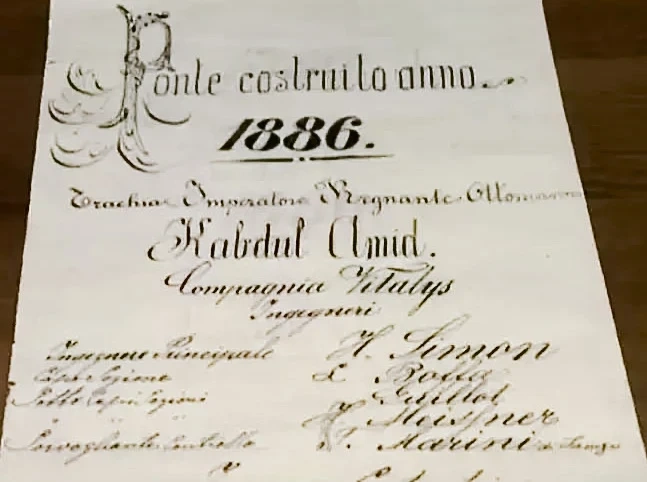 Ponte costruito anno
1886.
Trachia Imperatore Regnante Ottomano
Kabdul Amid.
Compagnia Vitalys
Ingegneri
Ingegnere Principale H. Simon
Capo Sezione L. Botta
Sotto Capi Sezioni Guillot
" " H. Meisner
Sorvegliante Controllo F. Marini